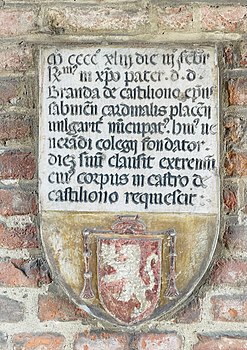 M CCCC xliij die iij febr
Rmus in xpo pater d. d.
Branda de castiliono epus
sabinen cardinalis placen
vulgarit nucupat huius ve
nerandi colegij fondator
diez suum clausit extremum
cuius corpus in castro de
castiliono requiescit